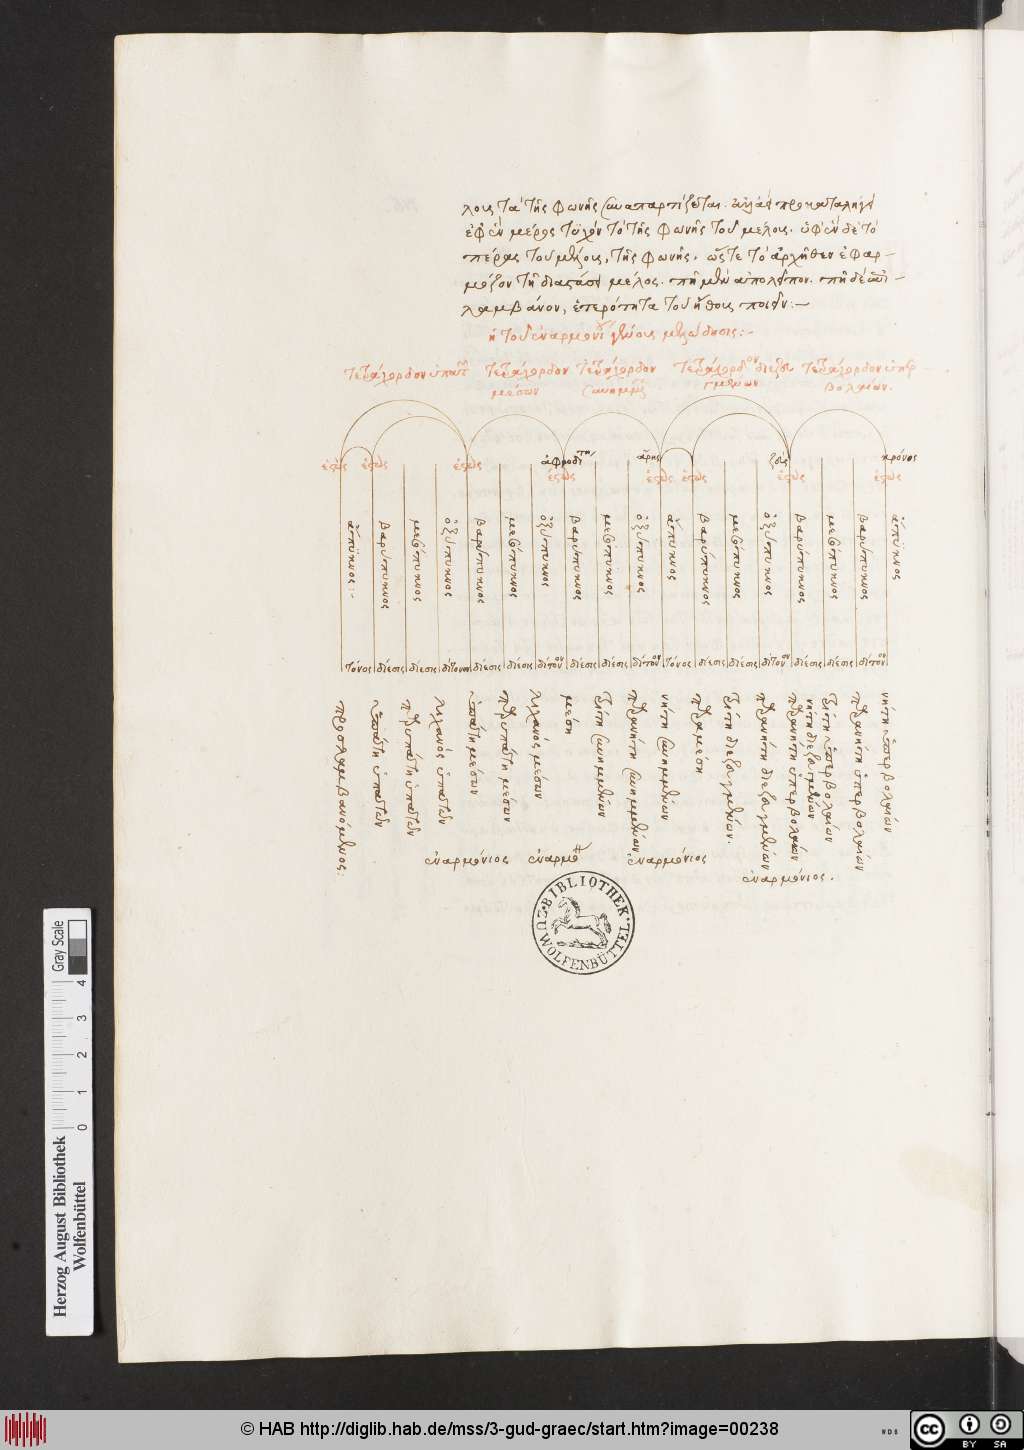 λοις τὰ τῆς φωνῆς συναπαρτίζεται. ἀλλὰ προκαταλήγει
ἐφ' ὃν μέρος τυχὸν τὸ τῆς φωνῆς τοῦ μέλους. ὑφ' ὃν δὲ τὸ
πέρας τοῦ μέλους, τῆς φωνῆς. ὥστε τὸ ἀρχῆθεν ἐφαρ-
μόζον τῇ διαστάσει μέλος. πῆ μὲν ἀπολεῖπον. πῆ δὲ
λαμβάνον, ἑτερότητα τοῦ ἤθους ποιεῖν:—
ἡ τοῦ ἐναρμονίου γένους μελώδησις:-
τετράχορδον ὑπατ τετράχορδον τετράχορδον τετράχορδον διεζευ τετράχορδον ὑπερ
μέσων συνημμ γμένων βολαίων.
ἀφροδίτη ἄρης ζεὺς κρόνος
ἑστὼς ἑστὼς ἑστὼς ἑστὼς ἑστὼς ἑστὼς ἑστὼς ἑστὼς
ἄπυκνος:-
βαρύπυκνος
μεσόπυκνος
ὀξύπυκνος
βαρύπυκνος
μεσόπυκνος
ὀξύπυκνος
βαρύπυκνος
μεσόπυκνος
ὀξύπυκνος
ἄπυκνος
βαρύπυκνος
μεσόπυκνος
ὀξύπυκνος
βαρύπυκνος
μεσόπυκνος
βαρύπυκνος
ἄπυκνος
τόνος δίεσις δίεσις δίτονον δίεσις δίεσις δίτονον δίεσις δίεσις δίτονον τόνος δίεσις δίεσις δίτονον δίεσις δίεσις δίτονον
προσλαμβανόμενος:
ὑπάτη ὑπάτων
παρυπάτη ὑπάτων
λιχανὸς ὑπάτων
ὑπάτη μέσων
παρυπάτη μέσων
λιχανὸς μέσων
μέση
τρίτη συνημμένων
παρανήτη συνημμένων
νήτη συνημμένων
παραμέση
τρίτη διεζευγμένων.
παρανήτη διεζευγμένων
νήτη διεζευγμένων
παρανήτη ὑπερβολαίων
τρίτη ὑπερβολαίων
παρανήτη ὑπερβολαίων
νήτη ὑπερβολαίων
ἐναρμόνιος ἐναρμο ἐναρμόνιος
ἐναρμόνιος.
BIBLIOTHEK
ZU WOLFENBÜTTEL
Herzog August Bibliothek
Wolfenbüttel
Gray Scale
0 1 2 3 4
© HAB http://diglib.hab.de/mss/3-gud-graec/start.htm?image=00238
WDB
cc
BY SA